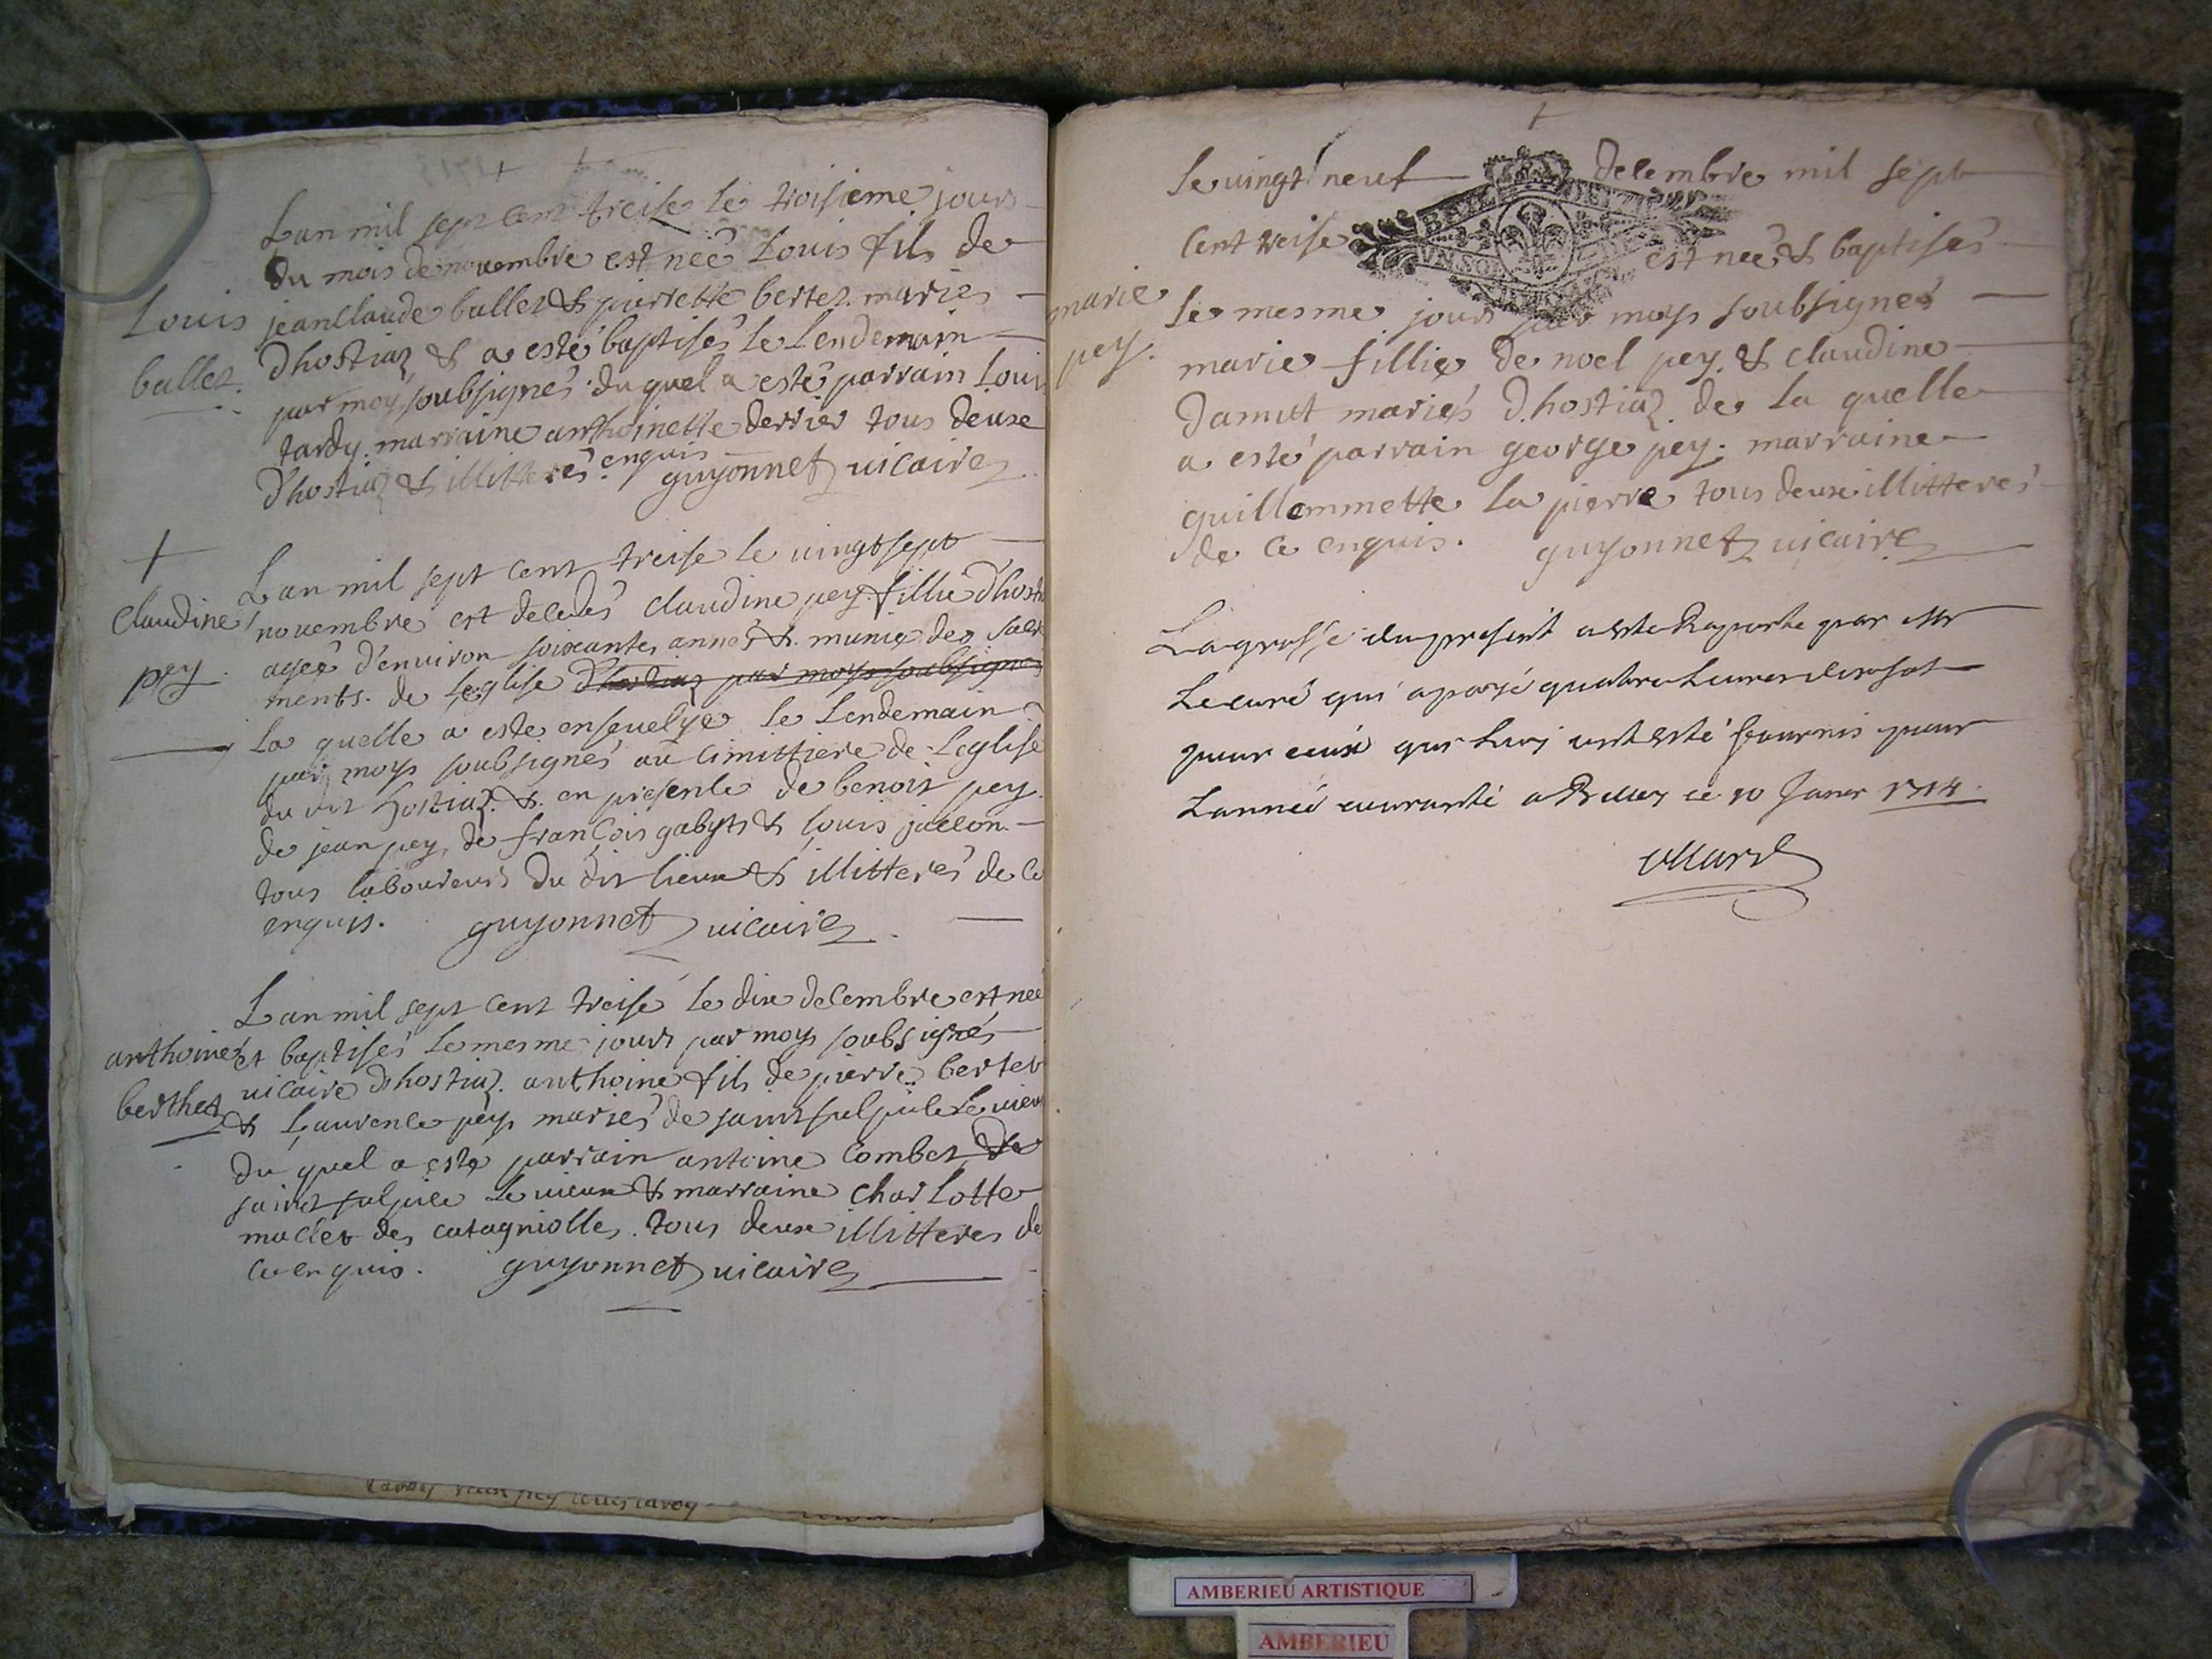 Lan mil sept cent treise le troisieme jours
du mois de novembre est neé Louis fils de
Louis
jean Claude ballet & pierrette bertet mariés
ballet.
d'hostiaz & a esté baptisés le Lendemain
par moy soubsignés. du quel a esté parrain Louis
tardy. marraine anthoinette derrier tous deuse
d'hostiaz & illitterés. enquis guyonnet vicaire
Claudine
pey
Lan mil sept cent treise le vingtsept
novembre est decedés claudine pey. fillie d'host
ageé d'environ soixante anneé &. munie des sacre
ments. de Leglise d'hostiaz par moys soubsignes
la quelle a este ensevelye le Lendemain
par moys soubsignés au Cimittiere de Leglise
du dit Hostiaz. &. en presence de benoit pey.
de jean pey, de françois gabyt & Louis jaccon.
tous laboureurs du dit lieux & illitterés de ce
enquis. guyonnet vicaire
Lan mil sept cent treisé le dix decembre est neé
anthoine
et baptisés le mesme jours par moys soubsignés
berthet
vicaire d'hostiaz. anthoine fils de pierre bertet
& Laurence pey mariés de saint sulpice le vieu
du quel a este parrain antoine Combet de
saint sulpice le vieux & marraine Charlotte
maclet des catagniolles. tous deuse illitteres de
ce enquis. guyonnet vicaire
le vingt neuf decembre mil sept
cent treise est neé & baptisés
marie
pey.
le mesme jours par moys soubsignés
marie fillie de noel pey. & claudine
damut mariés d'hostiaz de la quelle
a esté parrain george pey. marraine
guillemmette la pierre tous deuse illitterés
de ce enquis. guyonnet vicaire
La grosse du present a esté Raporte par Mr
Le curé qui a payé quatre Livres
pour ceux que Luy ont esté fournis pour
Lannéé courante a Belley ce 10 Janer 1714.
AMBERIEU ARTISTIQUE
AMBERIEU